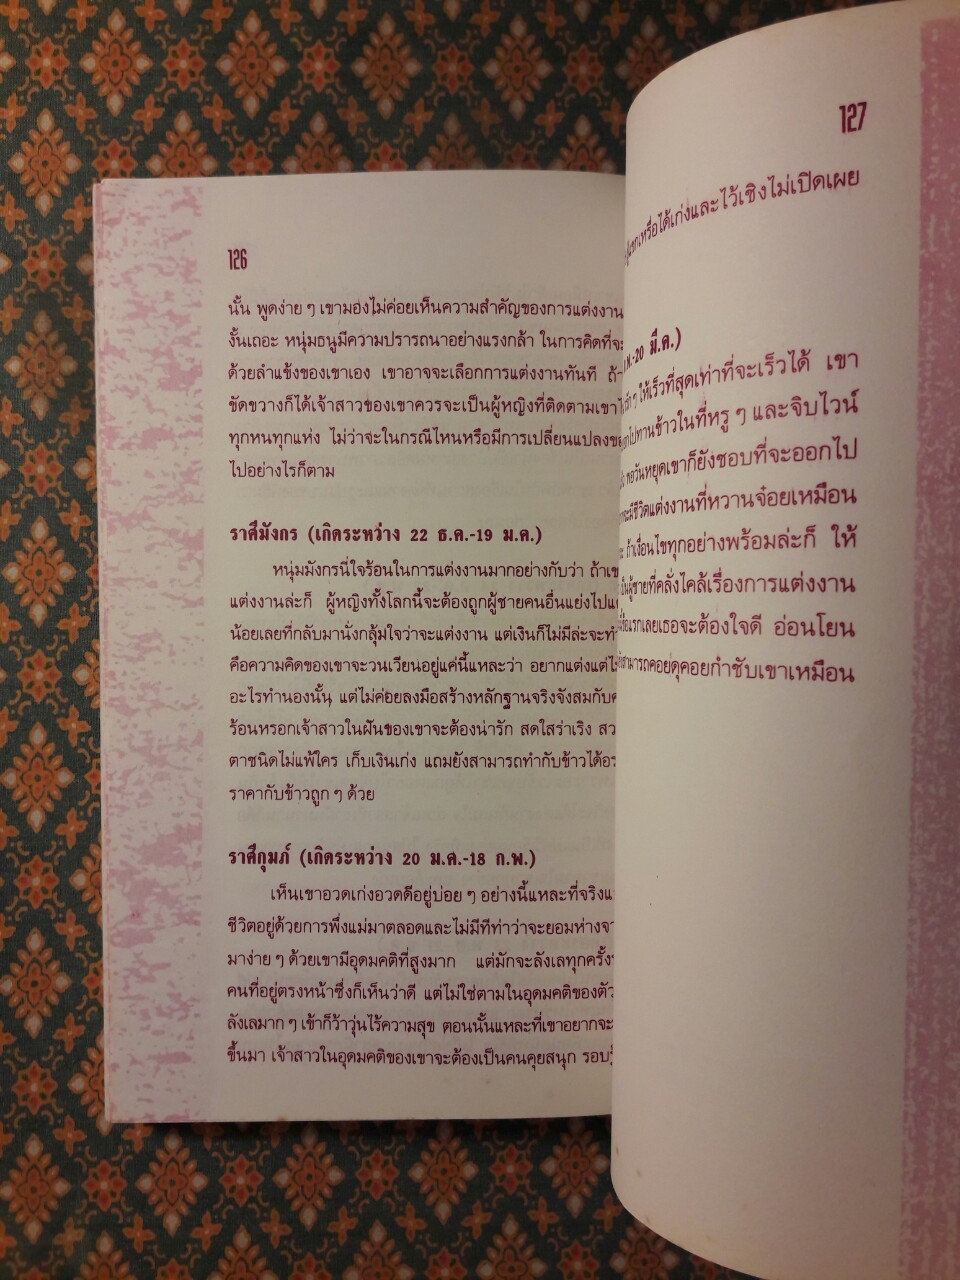 126
นั้น พูดง่าย ๆ เขามองไม่ค่อยเห็นความสำคัญของการแต่งงาน
งั้นเถอะ หนุ่มธนูมีความปรารถนาอย่างแรงกล้า ในการคิดที่จะ
ด้วยลำแข้งของเขาเอง เขาอาจจะเลือกการแต่งงานทันที ถ้า
ขัดขวางก็ได้เจ้าสาวของเขาควรจะเป็นผู้หญิงที่ติดตามเขา
ทุกหนทุกแห่ง ไม่ว่าจะในกรณีไหนหรือมีการเปลี่ยนแปลง
ไปอย่างไรก็ตาม
ราศีมังกร (เกิดระหว่าง 22 ธ.ค.-19 ม.ค.)
หนุ่มมังกรนี่ใจร้อนในการแต่งงานมากอย่างกับว่า ถ้า
แต่งงานล่ะก็ ผู้หญิงทั้งโลกนี้จะต้องถูกผู้ชายคนอื่นแย่งไป
น้อยเลยที่กลับมานั่งกลุ้มใจว่าจะแต่งงาน แต่เงินก็ไม่มีล่ะจะทำ
คือความคิดของเขาจะวนเวียนอยู่แค่นี้แหละว่า อยากแต่งแต่
อะไรทำนองนั้น แต่ไม่ค่อยลงมือสร้างหลักฐานจริงจังสมกับ
ร้อนหรอกเจ้าสาวในฝันของเขาจะต้องน่ารัก สดใสร่าเริง
ตาชนิดไม่แพ้ใคร เก็บเงินเก่ง แถมยังสามารถทำกับข้าวได้
ราคากับข้าวถูก ๆ ด้วย
ราศีกุมภ์ (เกิดระหว่าง 20 ม.ค.-18 ก.พ.)
เห็นเขาอวดเก่งอวดดีอยู่บ่อย ๆ อย่างนี้แหละที่จริง
ชีวิตอยู่ด้วยการพึ่งแม่มาตลอดและไม่มีทีท่าว่าจะยอมห่าง
มาง่าย ๆ ด้วยเขามีอุดมคติที่สูงมาก แต่มักจะลังเลทุกครั้ง
คนที่อยู่ตรงหน้าซึ่งก็เห็นว่าดี แต่ไม่ใช่ตามในอุดมคติของตัว
ลังเลมาก ๆ เข้าก็ว้าวุ่นไร้ความสุข ตอนนั้นแหละที่เขาอยากจะ
ขึ้นมา เจ้าสาวในอุดมคติของเขาจะต้องเป็นคนคุยสนุก
127
เหรื่อได้เก่งและไว้เชิงไม่เปิดเผย
20 มี.ค.)
ให้เร็วที่สุดเท่าที่จะเร็วได้ เขา
ไปทานข้าวในที่หรู ๆ และจิบไวน์
พอวันหยุดเขาก็ยังชอบที่จะออกไป
จะมีชีวิตแต่งงานที่หวานจ๋อยเหมือน
ถ้าเงื่อนไขทุกอย่างพร้อมล่ะก็ ให้
ผู้ชายที่คลั่งไคล้เรื่องการแต่งงาน
แรกเลยเธอจะต้องใจดี อ่อนโยน
สามารถคอยดุคอยกำชับเขาเหมือน